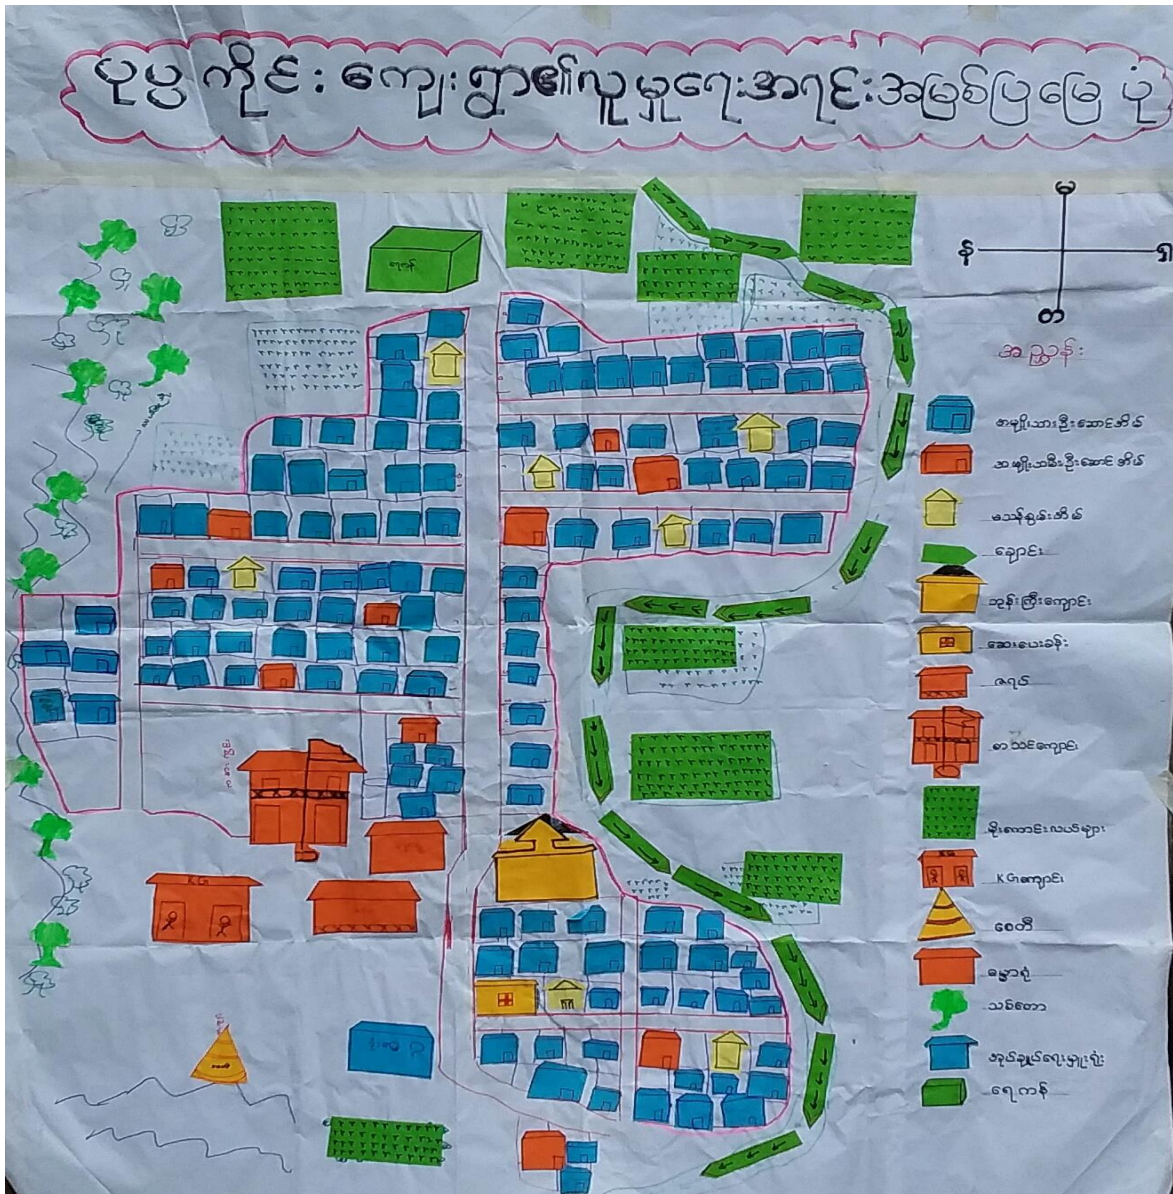 ပုပ္ပကိုင်းကျေးရွာ၏လူမှုရေးအရင်းအမြစ်ပြမြေပုံ
မ
န
ရှ
တ
အညွှန်း
အမျိုးသားဦးဆောင်အိမ်
အမျိုးသမီးဦးဆောင်အိမ်
မသန်စွမ်းအိမ်
ချောင်း
ဘုန်းကြီးကျောင်း
ဆေးပေးခန်း
ဇရပ်
စာသင်ကျောင်း
စိုးကောင်းလယ်များ
KGကျောင်း
စေတီ
ဓမ္မာရုံ
သစ်တော
အုပ်ချုပ်ရေးမှူးရုံး
ရေကန်
ရေကန်
KG